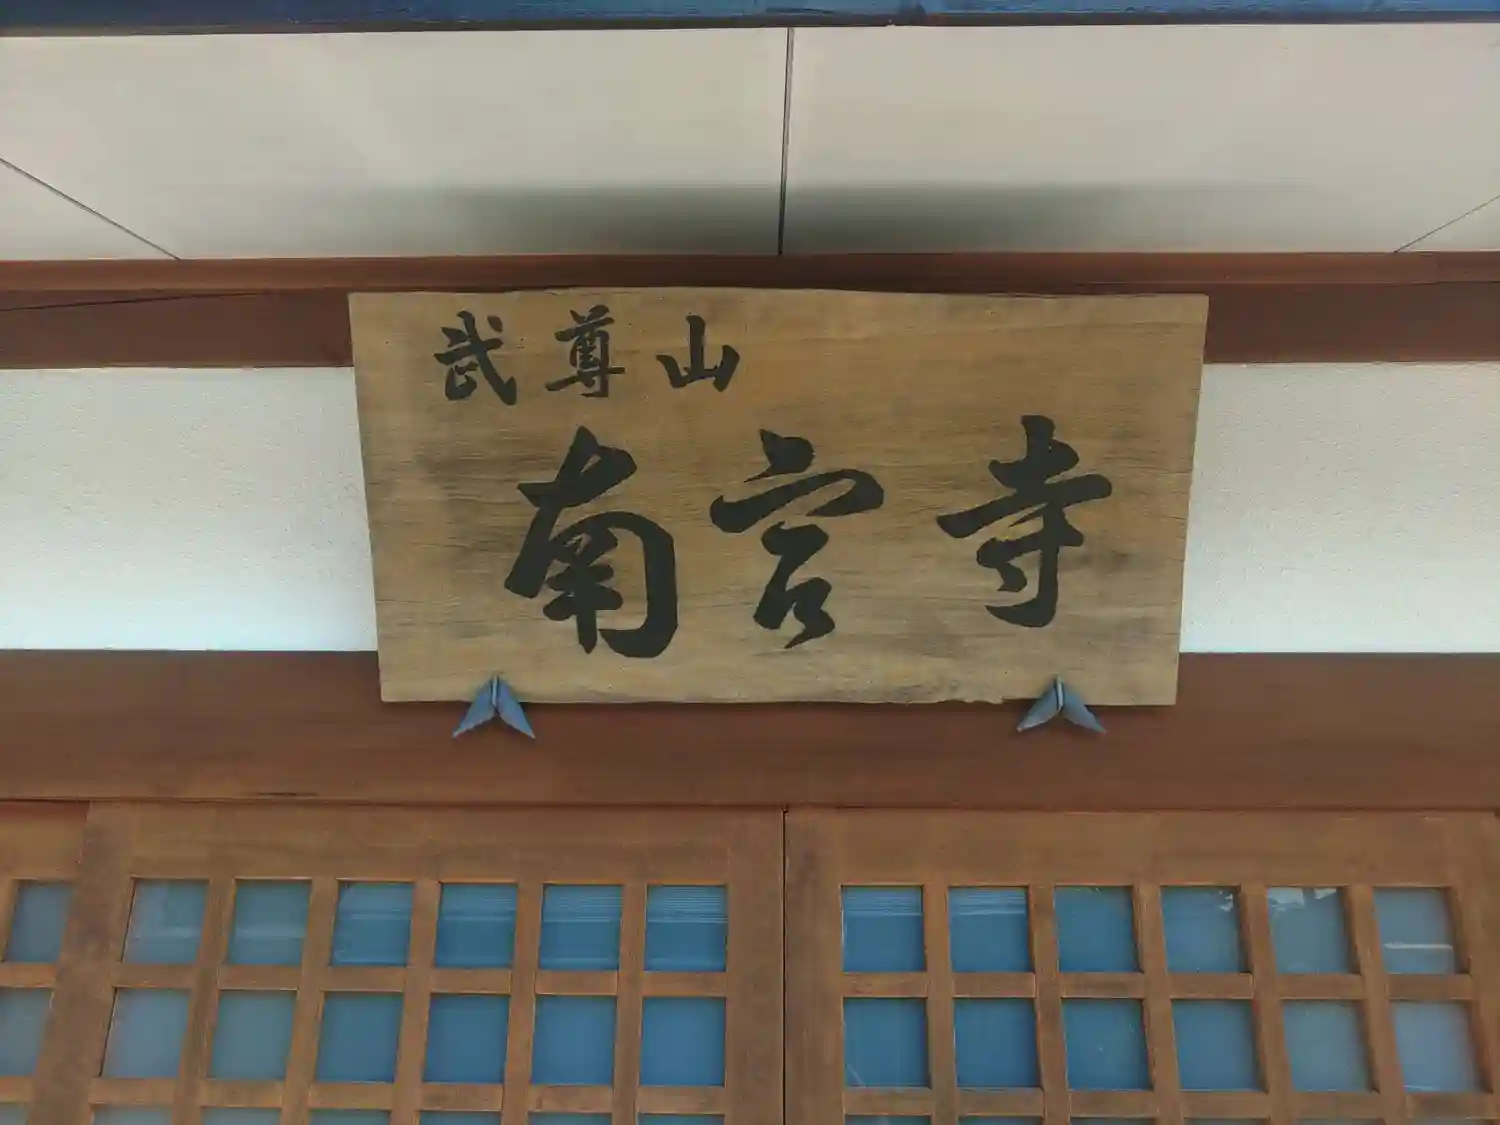 武尊山
南宮寺